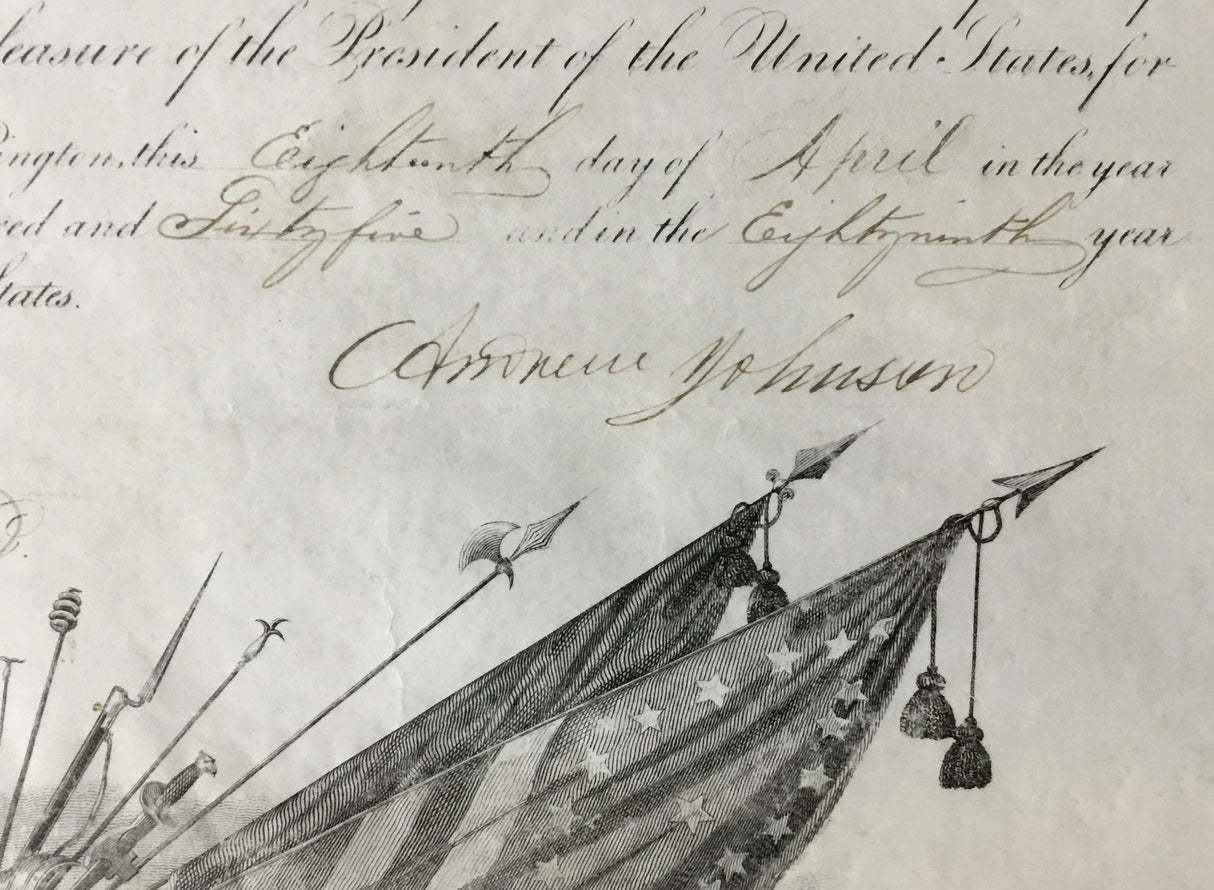 leasure of the President of the United States, for
ington, this Eighteenth day of April in the year
red and Sixty five and in the Eighty ninth year
tates.
Andrew Johnson